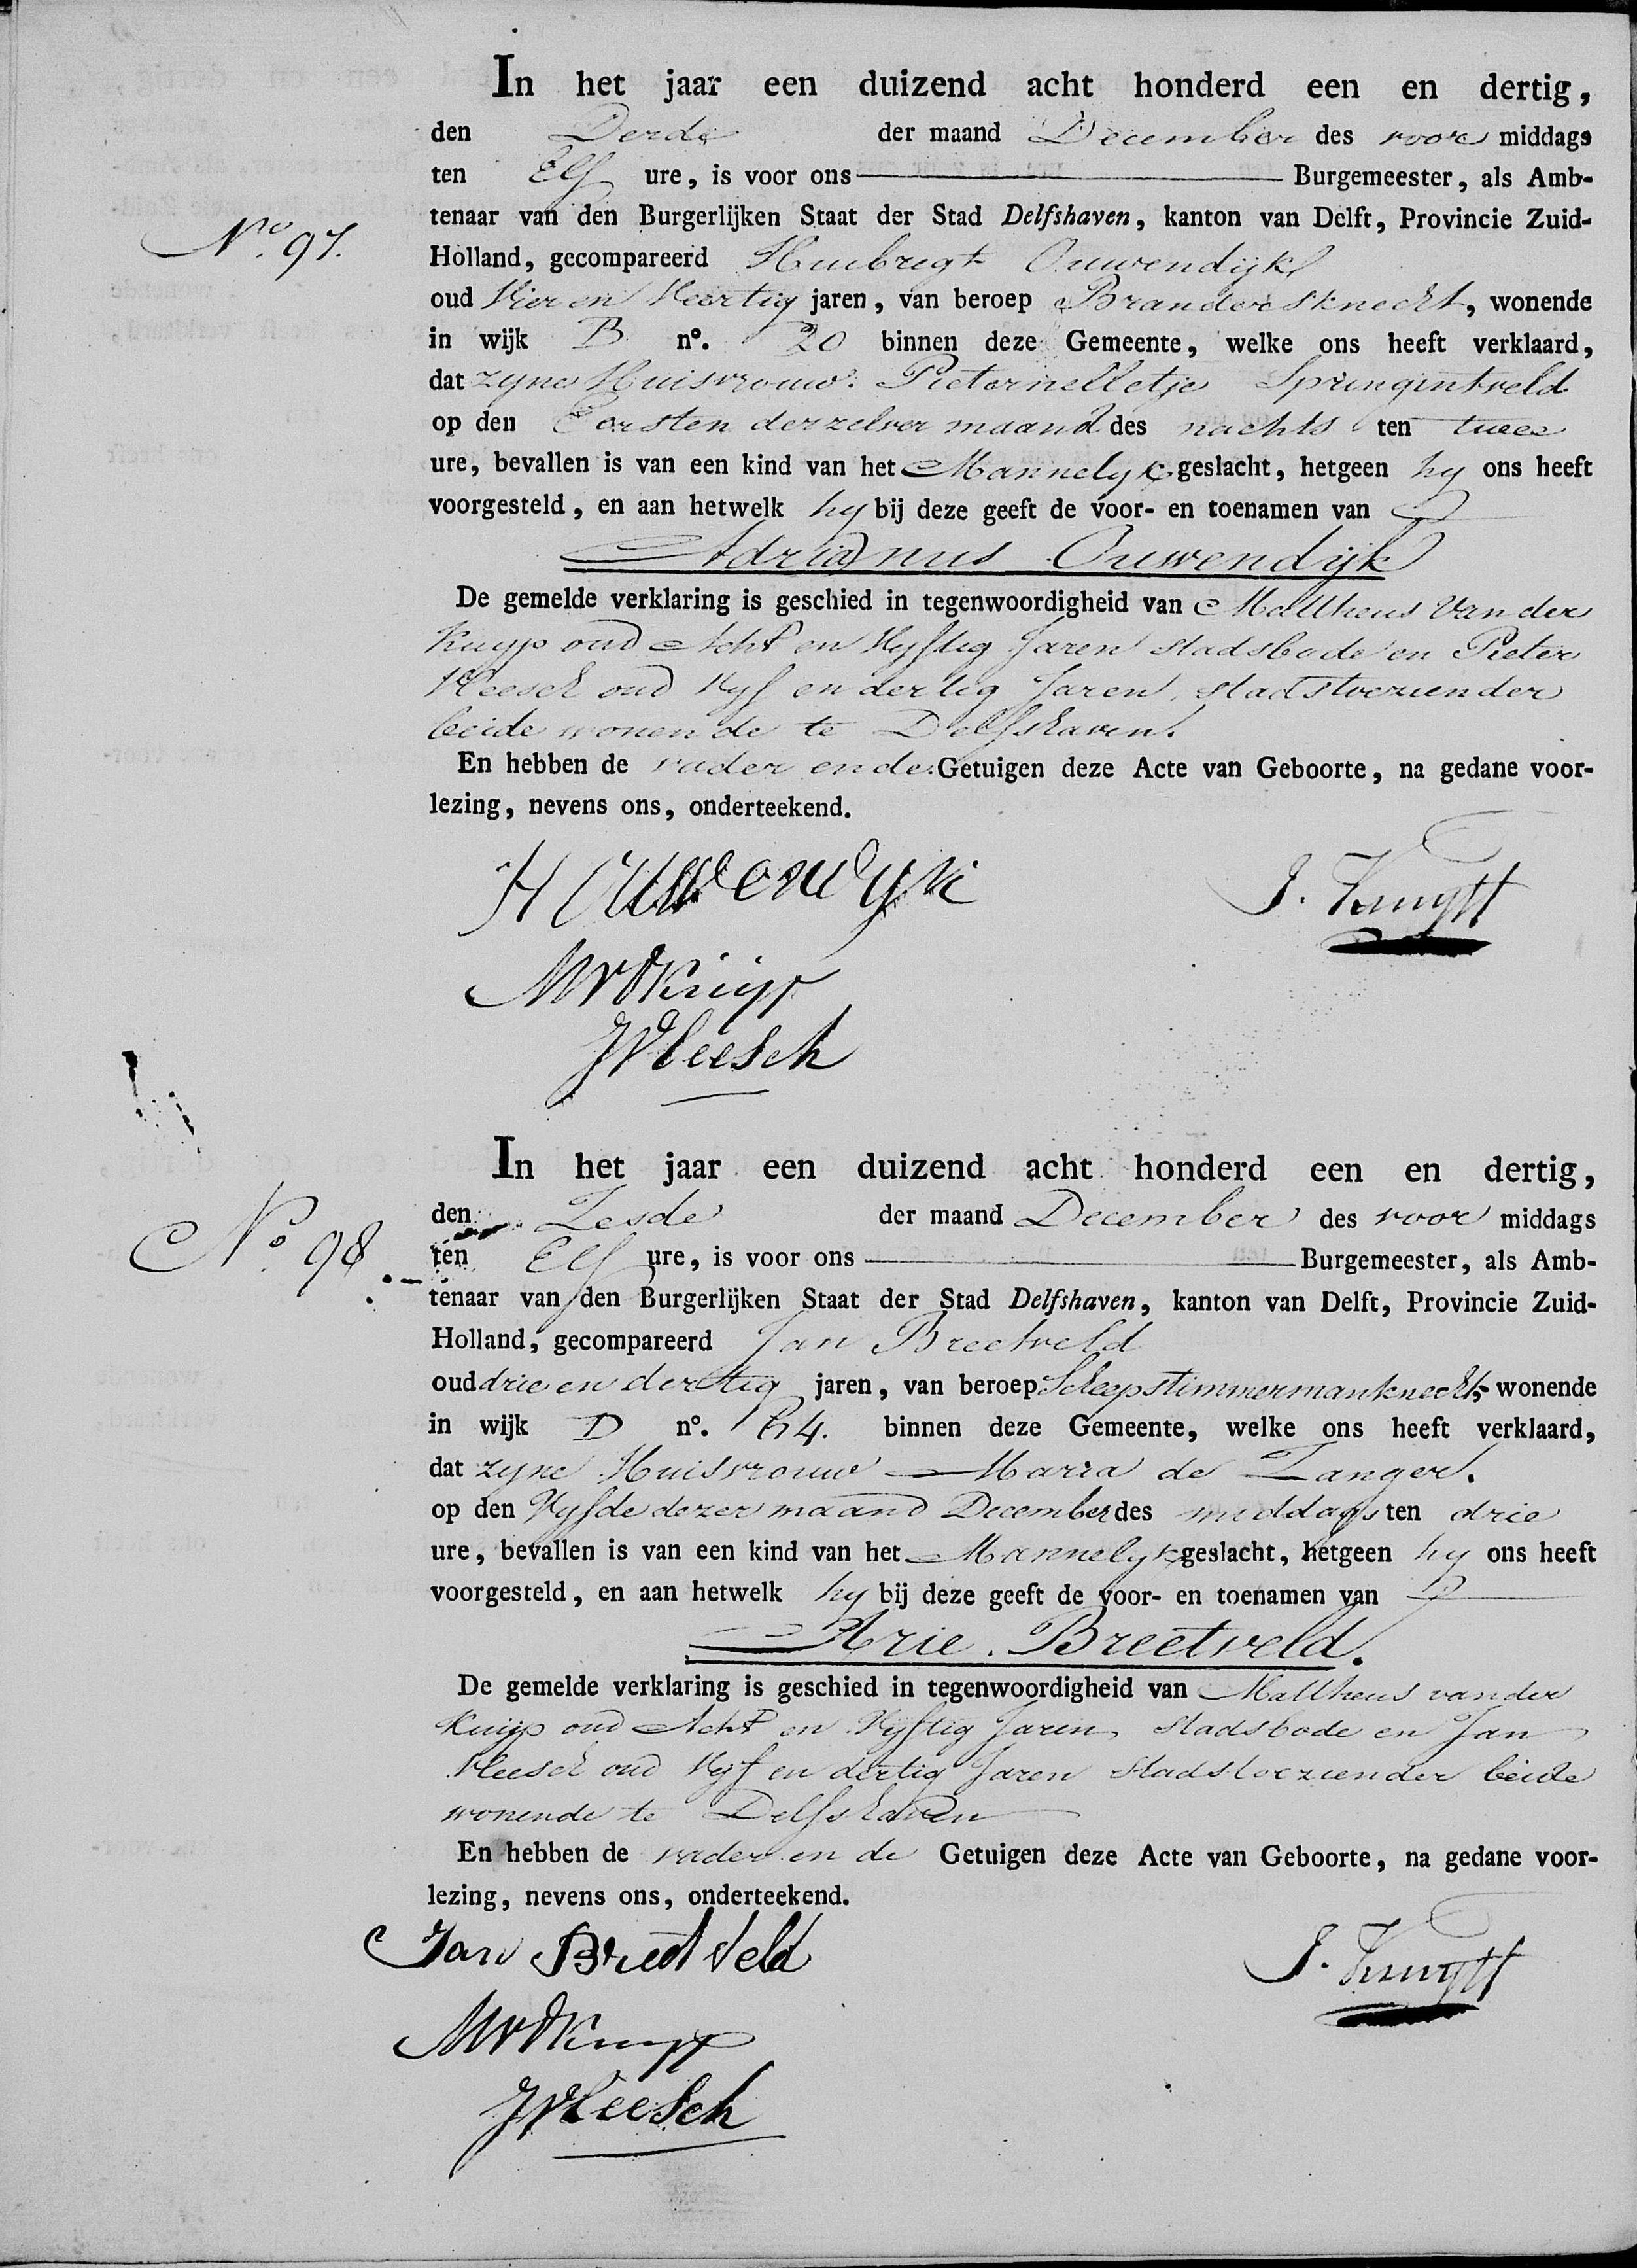 In het jaar een duizend acht honderd een en dertig,
den Derde der maand December des voor middags
ten Elf ure, is voor ons Burgemeester, als Amb-
tenaar van den Burgerlijken Staat der Stad Delfshaven, kanton van Delft, Provincie Zuid-
No. 97.
Holland, gecompareerd Huibregt Ouwendijk
oud Vier en Veertig jaren, van beroep Brandersknecht, wonende
in wijk B no. 20 binnen deze Gemeente, welke ons heeft verklaard,
dat zyne Huisvrouw. Pieternelletje Springintveld
op den Eersten derzelver maand des nachts ten twee
ure, bevallen is van een kind van het Mannelyk geslacht, hetgeen hy ons heeft
voorgesteld, en aan hetwelk hy bij deze geeft de voor- en toenamen van
Adrianus Ouwendijk
De gemelde verklaring is geschied in tegenwoordigheid van Mattheus Van der
Kuyp oud Acht en Vyftig Jaren Stadsbode en Pieter
Vleesch oud Vyf en dertig Jaren, Stadstoeziender
beide wonende te Delfshaven.
En hebben de vader en de Getuigen deze Acte van Geboorte, na gedane voor-
lezing, nevens ons, onderteekend.
H Ouwendyk
MVDKuyp
JVleesch
In het jaar een duizend acht honderd een en dertig,
den Zesde der maand December des voor middags
No 98
ten Elf ure, is voor ons Burgemeester, als Amb-
tenaar van den Burgerlijken Staat der Stad Delfshaven, kanton van Delft, Provincie Zuid-
Holland, gecompareerd Jan Breetveld
oud drie en dertig jaren, van beroep Scheepstimmermanknecht, wonende
in wijk D no. 64. binnen deze Gemeente, welke ons heeft verklaard,
dat zyne Huisvrouw Maria de Zanger.
op den Vyfde dezer maand December des middags ten drie
ure, bevallen is van een kind van het Mannelyk geslacht, hetgeen hy ons heeft
voorgesteld, en aan hetwelk hy bij deze geeft de voor- en toenamen van
Arie. Breetveld.
De gemelde verklaring is geschied in tegenwoordigheid van Mattheus van der
Kuyp oud Acht en Vyftig Jaren, Stadsbode en Jan
Vleesch oud Vyf en dertig Jaren Stadstoeziender beide
wonende te Delfshaven
En hebben de vader en de Getuigen deze Acte van Geboorte, na gedane voor-
lezing, nevens ons, onderteekend.
Jan Breetveld
MVDKuyp
JVleesch